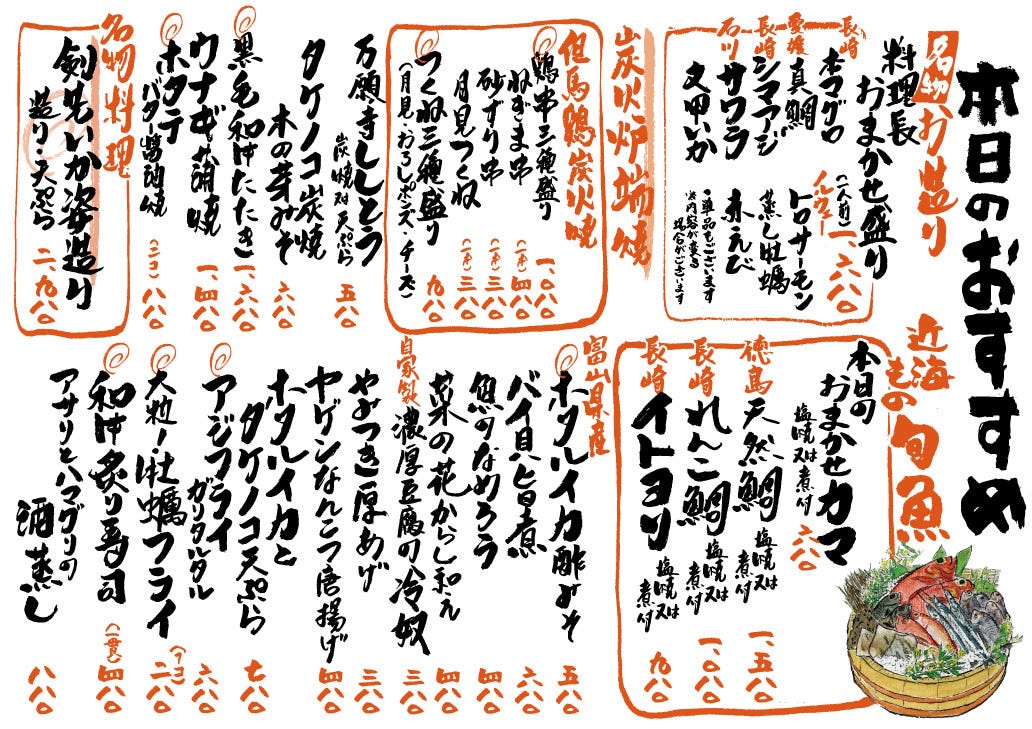 本日のおすすめ
名物 お造り
料理長
おまかせ盛り
(一人前) 一、六八〇
長崎 本マグロ
愛媛 真鯛
長崎 シマアジ
石川 サワラ
文甲いか
ノルウェー トロサーモン
蒸し牡蠣
赤えび
単品もございます
※内容が変る
場合がございます
炭火炉端焼
但馬鶏炭火焼
鶏串三種盛り 一、〇八〇
ねぎま串 (一本) 四八〇
砂ずり串 (一本) 三八〇
月見つくね (一本) 三八〇
つくね三種盛り 九八〇
(月見・おろしポン酢・チーズ)
万願寺ししとう
炭焼又は天ぷら 五八〇
タケノコ炭焼
木の芽みそ 六八〇
黒毛和牛たたき 一、六八〇
ウナギ蒲焼 一、四八〇
ホタテ
バター醤油焼 (二コ) 八八〇
名物料理
剣先いか姿造り
造り・天ぷら 二、九八〇
近海もの旬魚
本日の
おまかせカマ
塩焼又は煮付 六八〇
徳島 天然鯛 塩焼又は煮付 一、五八〇
長崎 れんこ鯛 塩焼又は煮付 一、〇八〇
長崎 イトヨリ 塩焼又は煮付 九八〇
富山県産
ホタルイカ酢みそ 五八〇
バイ貝旨煮 六八〇
鯵のなめろう 四八〇
菜の花からし和え 四八〇
自家製 濃厚豆腐の冷奴 三八〇
やみつき厚あげ 三八〇
ヤゲンなんこつ唐揚げ 四八〇
ホタルイカと
タケノコ天ぷら 七八〇
アジフライ
ガリタルタル 六八〇
大粒!牡蠣フライ (一コ) 二八〇
和牛炙り寿司 (一貫) 四八〇
アサリとハマグリの
酒蒸し 八八〇